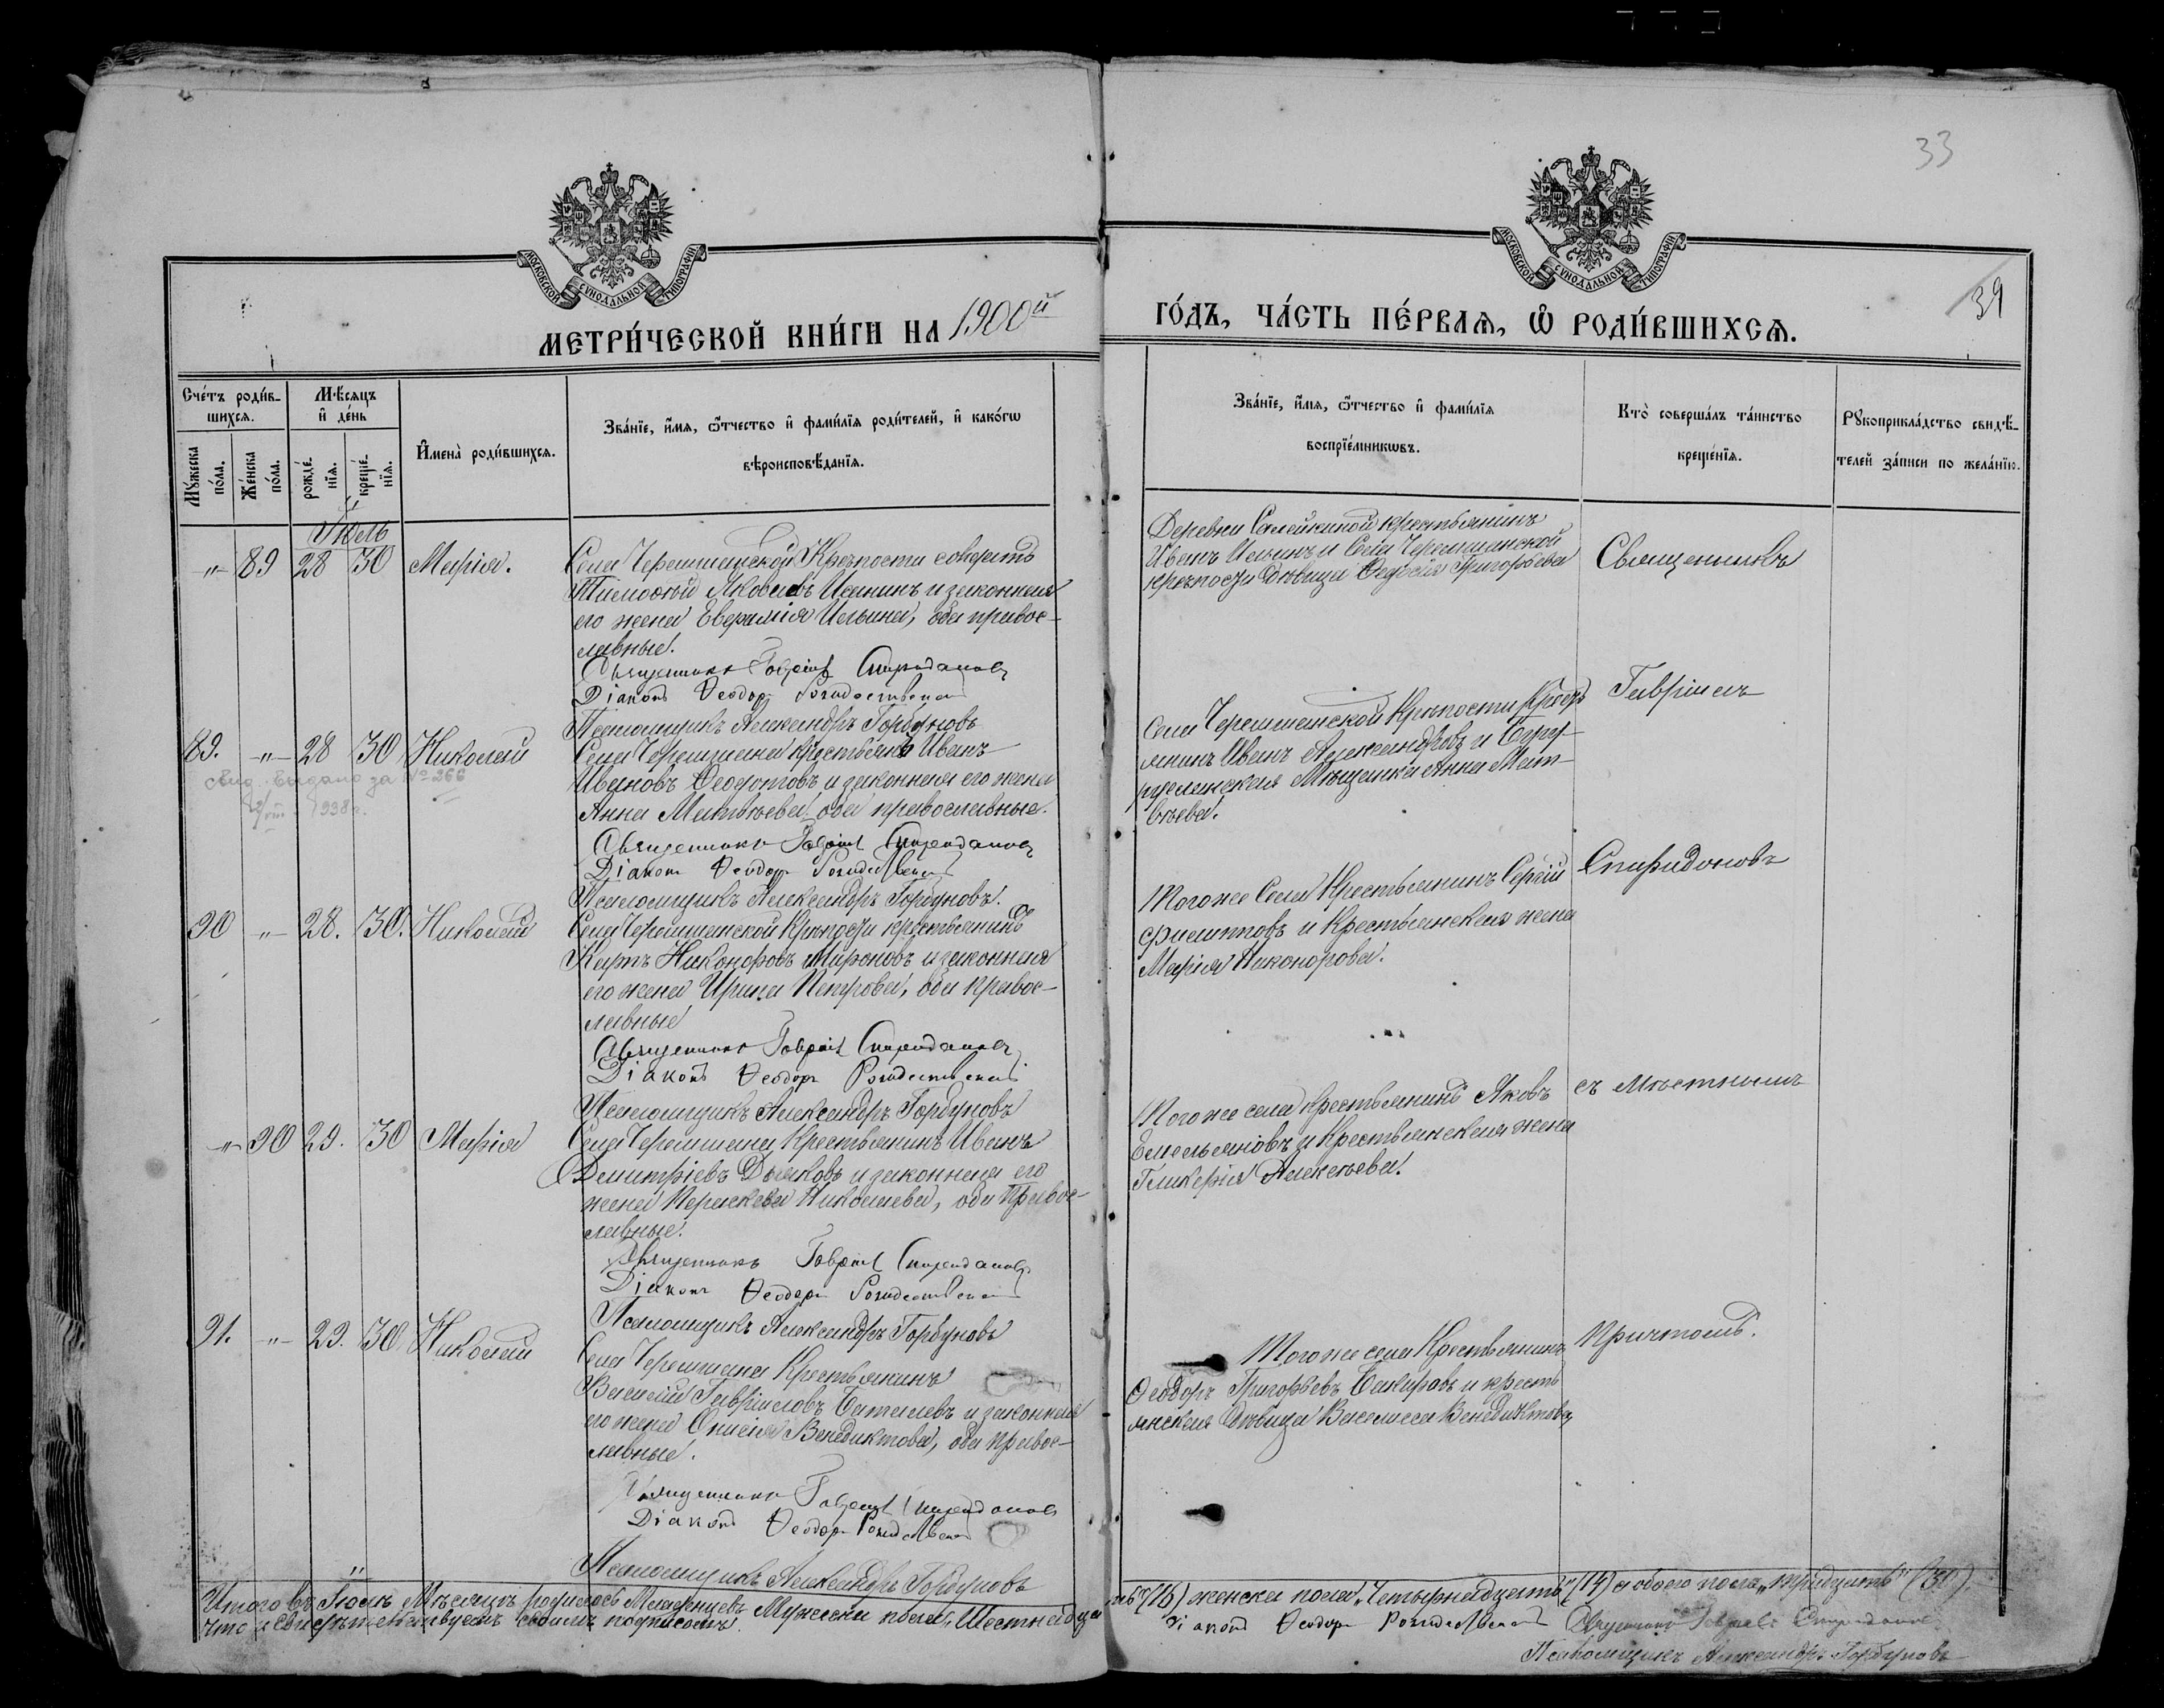 33
МОСКОВСКОЙ СѴНОДАЛЬНОЙ ТИПОГРАФІИ
МОСКОВСКОЙ СѴНОДАЛЬНОЙ ТИПОГРАФІИ
39
МЕТРИ́ЧЕСКОЙ КНИ́ГИ НА 1900й
ГО́ДЪ, ЧА́СТЬ ПЕ́РВАѦ, Ѽ РОДИ́ВШИХСѦ.
Сче́тъ роди́в-
шихсѧ.
Мѣ́сѧцъ
и҆ де́нь
Мꙋ́жеска по́ла.
Же́нска по́ла.
рожде́-нїѧ.
креще́-нїѧ.
И҆мена̀ роди́вшихсѧ.
Зва́нїе, и҆́мѧ, ѻ҆́тчество и҆ фами́лїѧ роди́телей, и҆ како́гѡ
вѣроисповѣ́данїѧ.
Зва́нїе, и҆́мѧ, ѻ҆́тчество и҆ фами́лїѧ
воспрїе́мникѡвъ.
Кто̀ соверша́лъ та́инство
креще́нїѧ.
Рꙋкоприкла́дство свидѣ́-
телей за́писи по жела́нїю.
Іюль
"- 89 28 30 Марія.
Села Черемшанской Крѣпости солдатъ
Тимоѳей Яковлевъ Исанинъ и законная
его жена Евфимія Ильина, оба правос-
лавные.
Священникъ Гавріилъ Спиридоновъ
Діаконъ Ѳеодоръ Рождественскій
Псаломщикъ Александръ Горбуновъ
Деревни Салейкиной крестьянинъ
Иванъ Ильинъ и Села Черемшанской
крѣпости дѣвица Ѳедосія Григорьева
Священникъ
89. "- 28 30 Николай
свид. выдано за № 266
1938 г.
Села Черемшана крестьянъ Иванъ
Ивановъ Ѳеодотовъ и законная его жена
Анна Матвѣева, оба православные.
Священникъ Гавріилъ Спиридоновъ
Діаконъ Ѳеодоръ Рождественскій
Псаломщикъ Александръ Горбуновъ.
Села Черемшанской Крѣпости Кресть
янинъ Иванъ Александровъ и Бугу-
русланская Мѣщанка Анна Мат-
вѣева.
Гавріилъ
90 "- 28. 30. Николай
Села Черемшанской Крѣпости крестьянинъ
Карпъ Никоноровъ Мироновъ и законная
его жена Ирина Петрова, оба правос-
лавные
Священникъ Гавріилъ Спиридоновъ
Діаконъ Ѳеодоръ Рождественскій
Псаломщикъ Александръ Горбуновъ
Того же Села Крестьянинъ Сергій
Филипповъ и Крестьянская жена
Марія Никонорова.
Спиридоновъ
"- 90 29. 30 Марія
Села Черемшана Крестьянинъ Иванъ
Димитріевъ Дьяковъ и законная его
жена Параскева Николаева, оба Правос-
лавные.
Священникъ Гавріилъ Спиридоновъ
Діаконъ Ѳеодоръ Рождественскій
Псаломщикъ Александръ Горбуновъ
Того же села крестьянинъ Яковъ
Емельяновъ и Крестьянская жена
Гликерія Алексѣева.
съ мѣстнымъ
91. "- 29. 30. Николай
Села Черемшана Крестьянинъ
Василій Гавріиловъ и законная
его жена Венедиктова, оба правос-
лавные.
Священникъ Гавріилъ Спиридоновъ
Діаконъ Ѳеодоръ Рождественскій
Псаломщикъ Александръ Горбуновъ
Того же села Крестьянинъ
Ѳеодоръ Григорьевъ и кресть
янская дѣвица Василиса Венедиктова
Причтомъ.
Итого въ Іюлѣ Мѣсяцѣ родилось Младенцевъ Мужска пола „Шестнадца
ть" (16) женска пола „Четырнадцать" (14) а обоего пола „тридцать" (30).
что и свидѣтельствуемъ своимъ подписомъ.
Діаконъ Ѳеодоръ Рождественскій Священникъ Гавріилъ Спиридоновъ
Псаломщикъ Александръ Горбуновъ